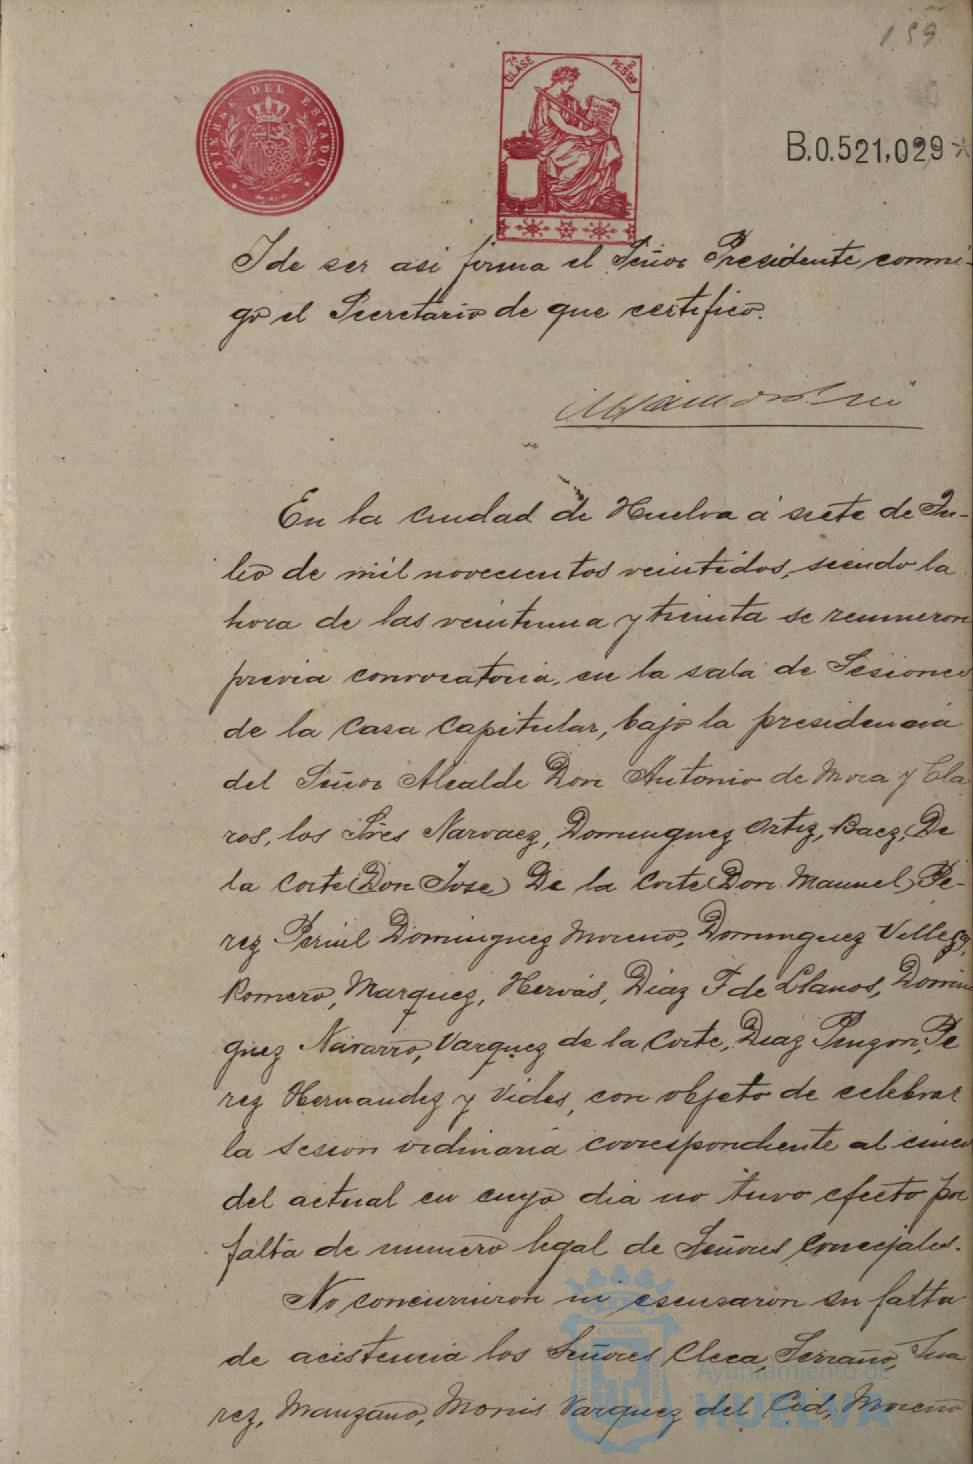 159
TIMBRE DEL ESTADO
7ª CLASE
2 PESTAS
B.0.521,029*
I de ser asi firma el Señor Presidente conmi-
go el Secretario de que certifico.
En la ciudad de Huelva á siete de Ju-
lio de mil novecientos veintidos, siendo la
hora de las veintiuna y treinta se reunieron
previa convocatoria, en la sala de Sesiones
de la Casa Capitular, bajo la presidencia
del Señor Alcalde Don Antonio de Mora y Cla
ros, los Sres Narvaez, Dominguez Ortiz, Baez, De
la Corte (Don Jose) De la Corte (Don Manuel) Pe-
rez Periul Dominguez Moreno, Dominguez Villegas,
Romero, Marquez, Hervás, Diaz F de Llanos, Domin
guez Navarro, Vazquez de la Corte, Diaz Pinzon, Pe
rez Hernandez y Vides, con objeto de celebrar
la sesion ordinaria correspondiente al cinco
del actual en cuyo dia no tuvo efecto por
falta de numero legal de Señores Concejales.
No concurrieron ni escusaron su falta
de acistencia los Señores Checa, Serrano, Sua
rez, Manzano, Monis Vazquez del Cid, Moreno
Ayuntamiento de
HUELVA